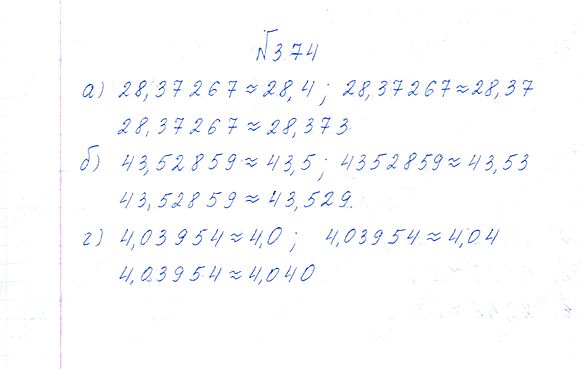 №374
а) 28,37267≈28,4; 28,37267≈28,37
28,37267≈28,373
б) 43,52859≈43,5; 4352859≈43,53
43,52859≈43,529.
г) 4,03954≈4,0; 4,03954≈4,04
4,03954≈4,040